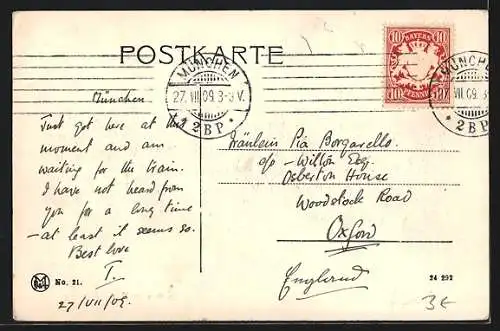 POSTKARTE
BAYERN
10 10
10 PFENNIG 10
MÜNCHEN
27. VII 09. 3-5 V.
* 2 B P *
MÜNCHEN
VII 09. 3-
* 2 B P
München.
Just got here at this
moment and am
waiting for the train.
I have not heard from
you for a long time
– at least it seems so.
Best love
I.
27/VII/09.
Fräulein Pia Borgarello.
c/o – Wilton Esq.
Osberton House
Woodstock Road
Oxford
England
No. 21.
24 292
3€